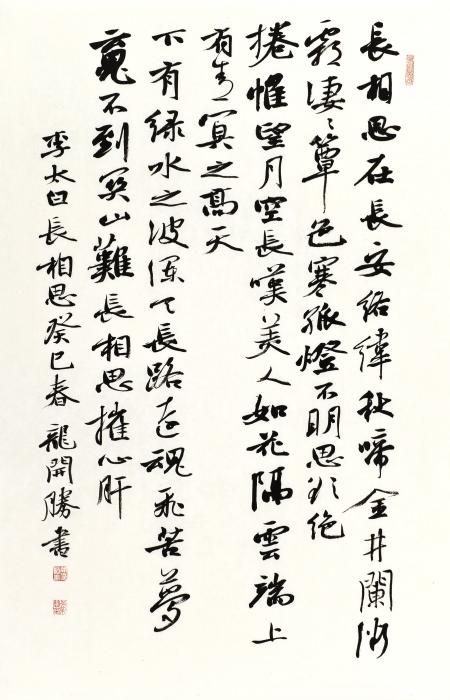 長相思在長安絡緯秋啼金井闌微
霜凄〻簟色寒孤燈不明思欲絕
捲帷望月空長嘆美人如花隔雲端上
有青冥之高天
下有緑水之波瀾天長路遠魂飛苦夢
魂不到關山難長相思摧心肝
李太白長相思癸巳春龍開勝書